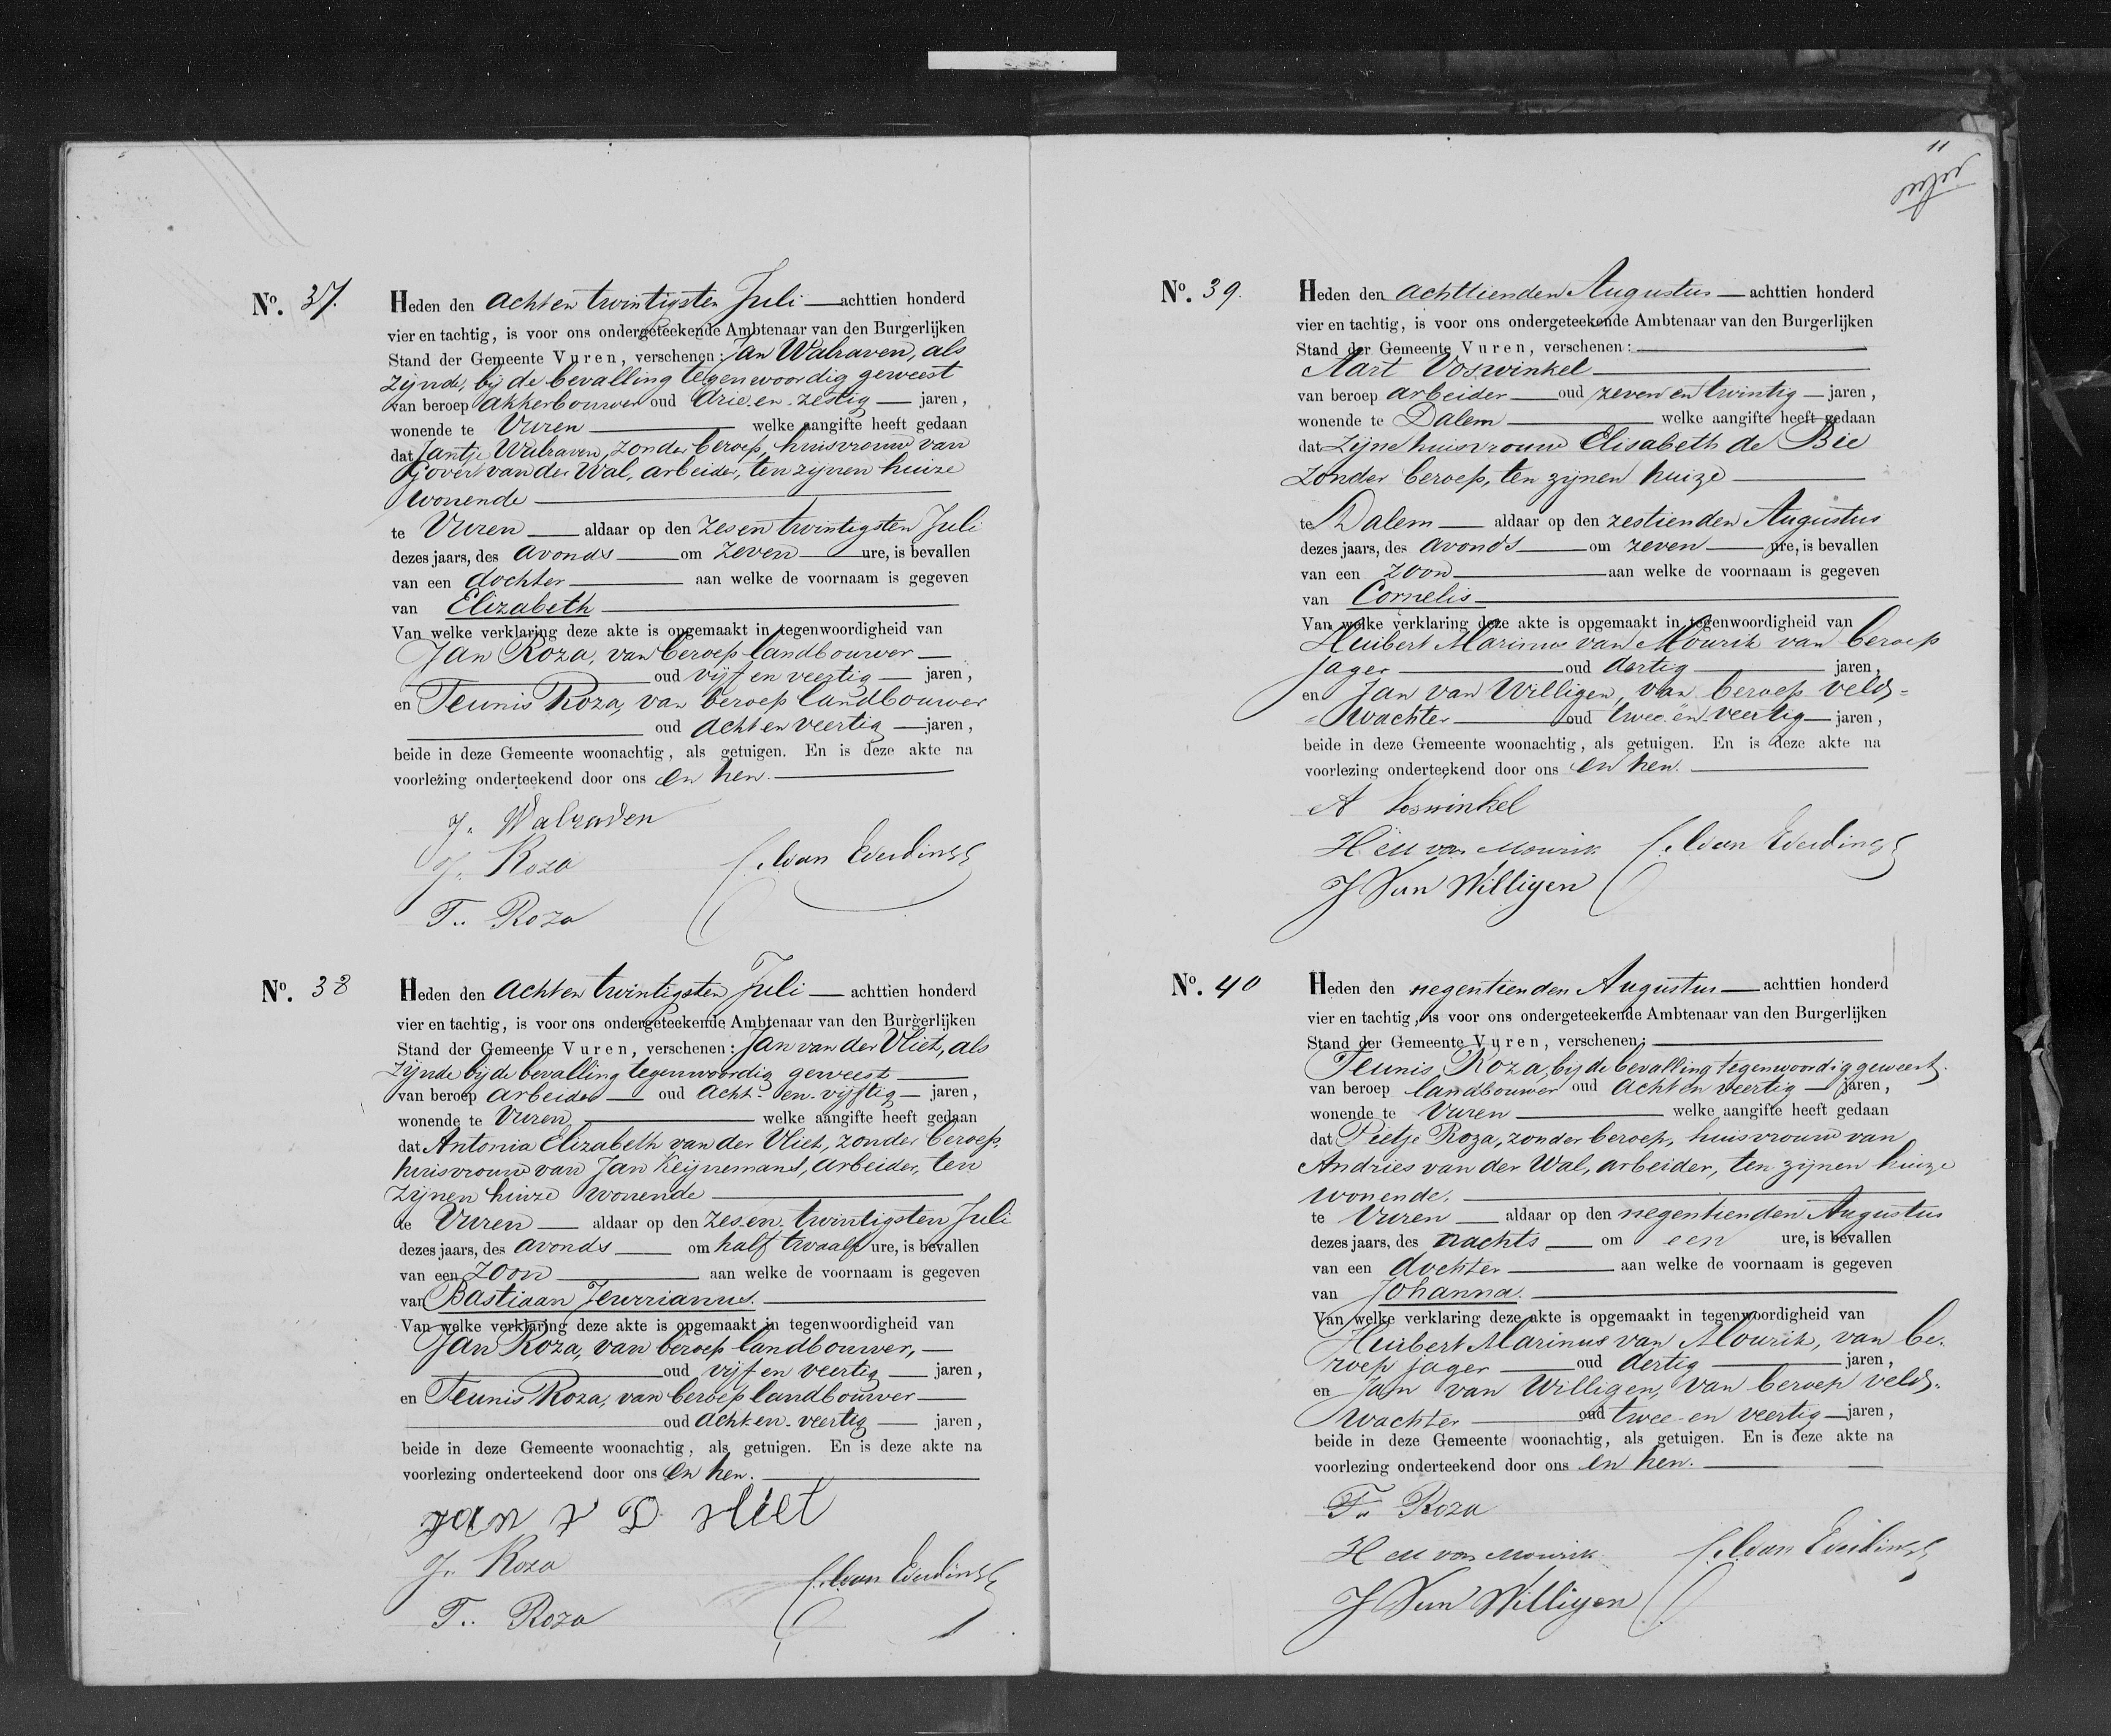 No. 37.
Heden den acht en twintigsten Juli — achttien honderd
vier en tachtig, is voor ons ondergeteekende Ambtenaar van den Burgerlijken
Stand der Gemeente Vuren, verschenen: Jan Walraven, als
zijnde, bij de bevalling tegenwoordig geweest
van beroep akkerbouwer oud drie en zestig — jaren,
wonende te Vuren — welke aangifte heeft gedaan
dat Jantje Walraven, zonder beroep, huisvrouw van
Govert van der Wal, arbeider, ten zijnen huize
wonende —
te Vuren — aldaar op den zes en twintigsten Juli
dezes jaars, des avonds — om zeven — ure, is bevallen
van een dochter — aan welke de voornaam is gegeven
van Elizabeth —
Van welke verklaring deze akte is opgemaakt in tegenwoordigheid van
Jan Roza, van beroep landbouwer —
— oud vijf en veertig — jaren,
en Teunis Roza, van beroep landbouwer
— oud acht en veertig — jaren,
beide in deze Gemeente woonachtig, als getuigen. En is deze akte na
voorlezing onderteekend door ons en hen. —
J. Walraven
J. Roza
van Everdingen
T. Roza
No. 38
Heden den acht en twintigsten Juli — achttien honderd
vier en tachtig, is voor ons ondergeteekende Ambtenaar van den Burgerlijken
Stand der Gemeente Vuren, verschenen: Jan van der Vliet, als
zijnde bij de bevalling tegenwoordig geweest —
van beroep arbeider — oud acht-en-vijftig — jaren,
wonende te Vuren, — welke aangifte heeft gedaan
dat Antonia Elizabeth van der Vliet, zonder beroep,
huisvrouw van Jan Keijnemans, arbeider, ten
zijnen huize wonende —
te Vuren — aldaar op den zes en twintigsten Juli
dezes jaars, des avonds — om half twaalf ure, is bevallen
van een zoon — aan welke de voornaam is gegeven
van Bastiaan Jeurrianus. —
Van welke verklaring deze akte is opgemaakt in tegenwoordigheid van
Jan Roza, van beroep landbouwer, —
— oud vijf en veertig — jaren,
en Teunis Roza, van beroep landbouwer —
— oud acht en veertig — jaren,
beide in deze Gemeente woonachtig, als getuigen. En is deze akte na
voorlezing onderteekend door ons en hen. —
jan v D vliet
J. Roza
van Everdingen
T. Roza
11
No. 39.
Heden den achttienden Augustus — achttien honderd
vier en tachtig, is voor ons ondergeteekende Ambtenaar van den Burgerlijken
Stand der Gemeente Vuren, verschenen: —
Aart Voswinkel —
van beroep arbeider — oud zeven en twintig — jaren,
wonende te Dalem — welke aangifte heeft gedaan
dat zijne huisvrouw Elisabeth de Bie
zonder beroep, ten zijnen huize —
te Dalem — aldaar op den zestienden Augustus
dezes jaars, des avonds — om zeven — ure, is bevallen
van een zoon — aan welke de voornaam is gegeven
van Cornelis —
Van welke verklaring deze akte is opgemaakt in tegenwoordigheid van
Huibert Marinus van Mourik van beroep
jager — oud dertig — jaren,
en Jan van Willigen, van beroep veld=
=wachter — oud twee en veertig — jaren,
beide in deze Gemeente woonachtig, als getuigen. En is deze akte na
voorlezing onderteekend door ons en hen. —
A Voswinkel
H M van Mourik
van Everdingen
J Van Willigen
No. 40
Heden den negentienden Augustus — achttien honderd
vier en tachtig, is voor ons ondergeteekende Ambtenaar van den Burgerlijken
Stand der Gemeente Vuren, verschenen: —
Teunis Roza, bij de bevalling tegenwoordig geweest.
van beroep landbouwer oud acht en veertig — jaren,
wonende te Vuren — welke aangifte heeft gedaan
dat Pietje Roza, zonder beroep, huisvrouw van
Andries van der Wal, arbeider, ten zijnen huize
wonende. —
te Vuren — aldaar op den negentienden Augustus
dezes jaars, des nachts — om een ure, is bevallen
van een dochter — aan welke de voornaam is gegeven
van Johanna. —
Van welke verklaring deze akte is opgemaakt in tegenwoordigheid van
Huibert Marinus van Mourik, van be-
roep jager — oud dertig — jaren,
en Jan van Willigen, van beroep veld-
wachter — oud twee en veertig — jaren,
beide in deze Gemeente woonachtig, als getuigen. En is deze akte na
voorlezing onderteekend door ons en hen. —
T. Roza
H M van Mourik
van Everdingen
J Van Willigen